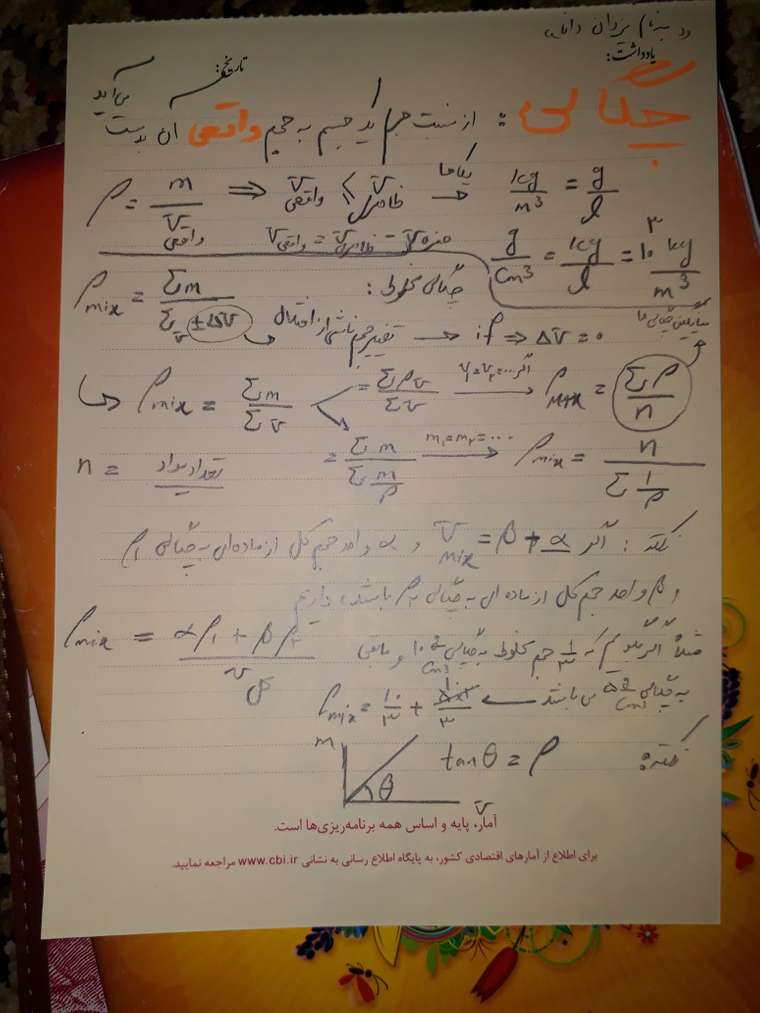 به نام یزدان دانا
یادداشت:
تاریخ:
چگالی : از نسبت جرم یک جسم به حجم واقعی آن بدست می‌آید
ρ = m / V واقعی ⟹ V واقعی ≤ V ظاهری → یکاها kg/m³ = g/l
V واقعی = V ظاهری − V حفره
g/cm³ = kg/l = 10³ kg/m³
چگالی مخلوط :
ρmix = Σm / (ΣV ± ΔV) تغییر حجم ناشی از اختلاط → if ⇒ ΔV = 0
میانگین چگالی ها
ρmix = Σm / ΣV = ΣρV / ΣV اگر V₁=V₂=... → ρmix = Σρ / n
n = تعداد مواد = Σm / Σ(m/ρ) m₁=m₂=... → ρmix = n / Σ(1/ρ)
نکته : اگر Vmix = β + α و α واحد حجم کل از ماده ای به چگالی ρ₁
و β واحد حجم کل از ماده ای به چگالی ρ₂ باشد، داریم
ρmix = (αρ₁ + βρ₂) / V کل
مثلاً اگر بگوییم که ۱/۳ حجم مخلوط به چگالی ۱۰ g/cm³ و مابقی
به چگالی ۵ g/cm³ می باشد ρmix = ۱۰/۳ + ۱۰/۳
نکته: tanθ = ρ
m
θ
V
آمار، پایه و اساس همه برنامه‌ریزی‌ها است.
برای اطلاع از آمارهای اقتصادی کشور، به پایگاه اطلاع رسانی به نشانی www.cbi.ir مراجعه نمایید.